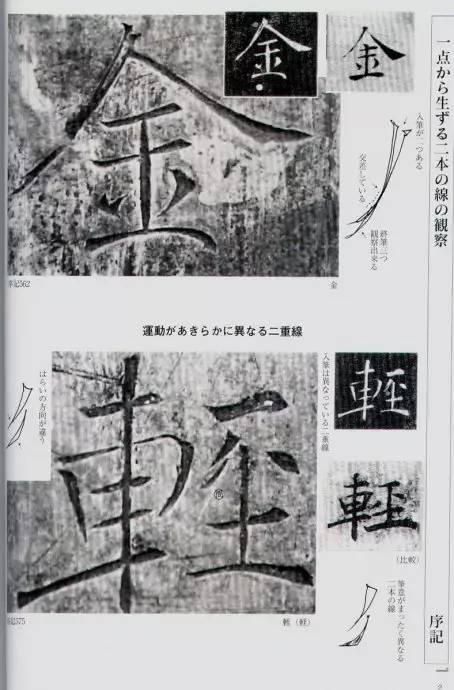 一点から生ずる二本の線の観察
序記
金
金
金
入筆が二つある
交差している
終筆三つ
観察出来る
序記562
金
運動があきらかに異なる二重線
入筆は異なっている二重線
はらいの方向が違う
軽
(比較)
筆意がまったく異なる
二本の線
序記575
軽(軽)
2